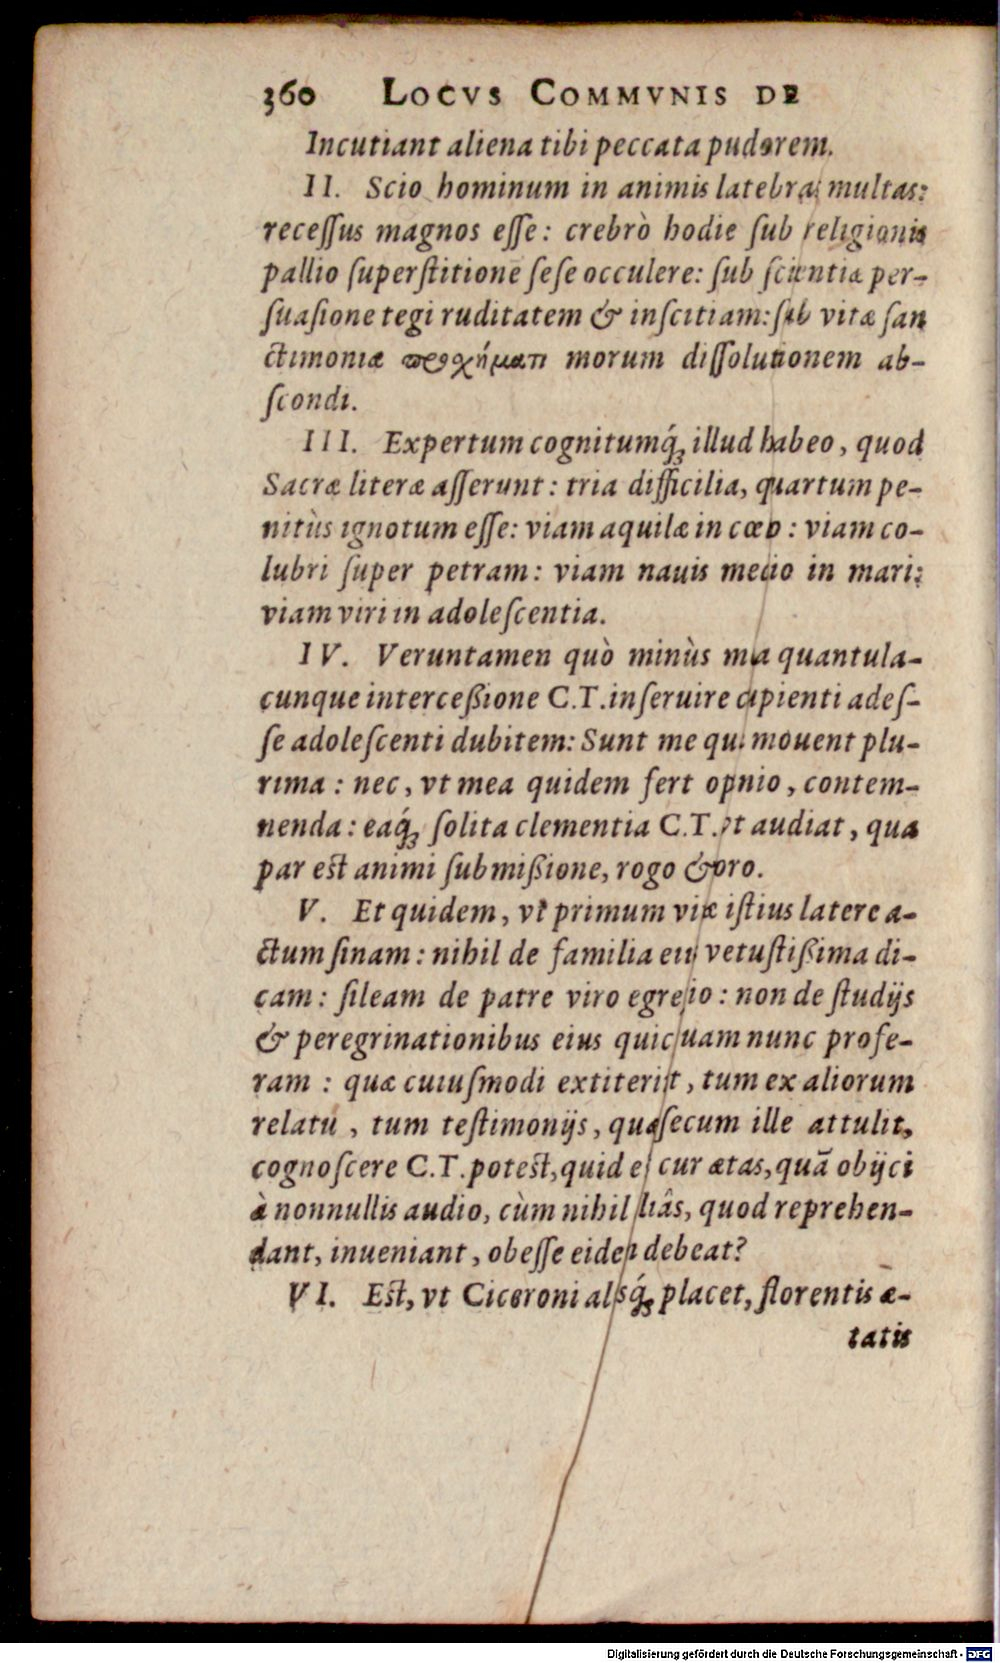 360 LOCVS COMMVNIS DE
Incutiant aliena tibi peccata pudorem.
II. Scio hominum in animis latebras multas:
recessus magnos esse: crebrò hodie sub religionis
pallio superstitionē sese occulere: sub scientiæ per-
suasione tegi ruditatem & inscitiam: sub vitæ san
ctimoniæ προσχήματι morum dissolutionem ab-
scondi.
III. Expertum cognitumq́; illud habeo, quod
Sacræ literæ asserunt: tria difficilia, quartum pe-
nitùs ignotum esse: viam aquilæ in cœo: viam co-
lubri super petram: viam nauis medio in mari:
viam viri in adolescentia.
IV. Veruntamen quò minùs mea quantula-
cunque intercessione C.T. inseruire cupienti ades-
se adolescenti dubitem: Sunt me qui mouent plu-
rima: nec, vt mea quidem fert opnio, contem-
nenda: eaq́; solita clementia C.T. vt audiat, qua
par est animi submissione, rogo & oro.
V. Et quidem, vt primum vitæ istius latere a-
ctum sinam: nihil de familia eius vetustissima di-
cam: sileam de patre viro egregio: non de studijs
& peregrinationibus eius quicquam nunc profe-
ram: quæ cuiusmodi extiterint, tum ex aliorum
relatu, tum testimonijs, quæ secum ille attulit,
cognoscere C.T. potest, quid est cur ætas, quā obijci
à nonnullis audio, cùm nihil aliâs, quod reprehen-
dant, inueniant, obesse eidem debeat?
VI. Est, vt Ciceroni alijsq́; placet, florentis æ-
tatis
Digitalisierung gefördert durch die Deutsche Forschungsgemeinschaft - DFG